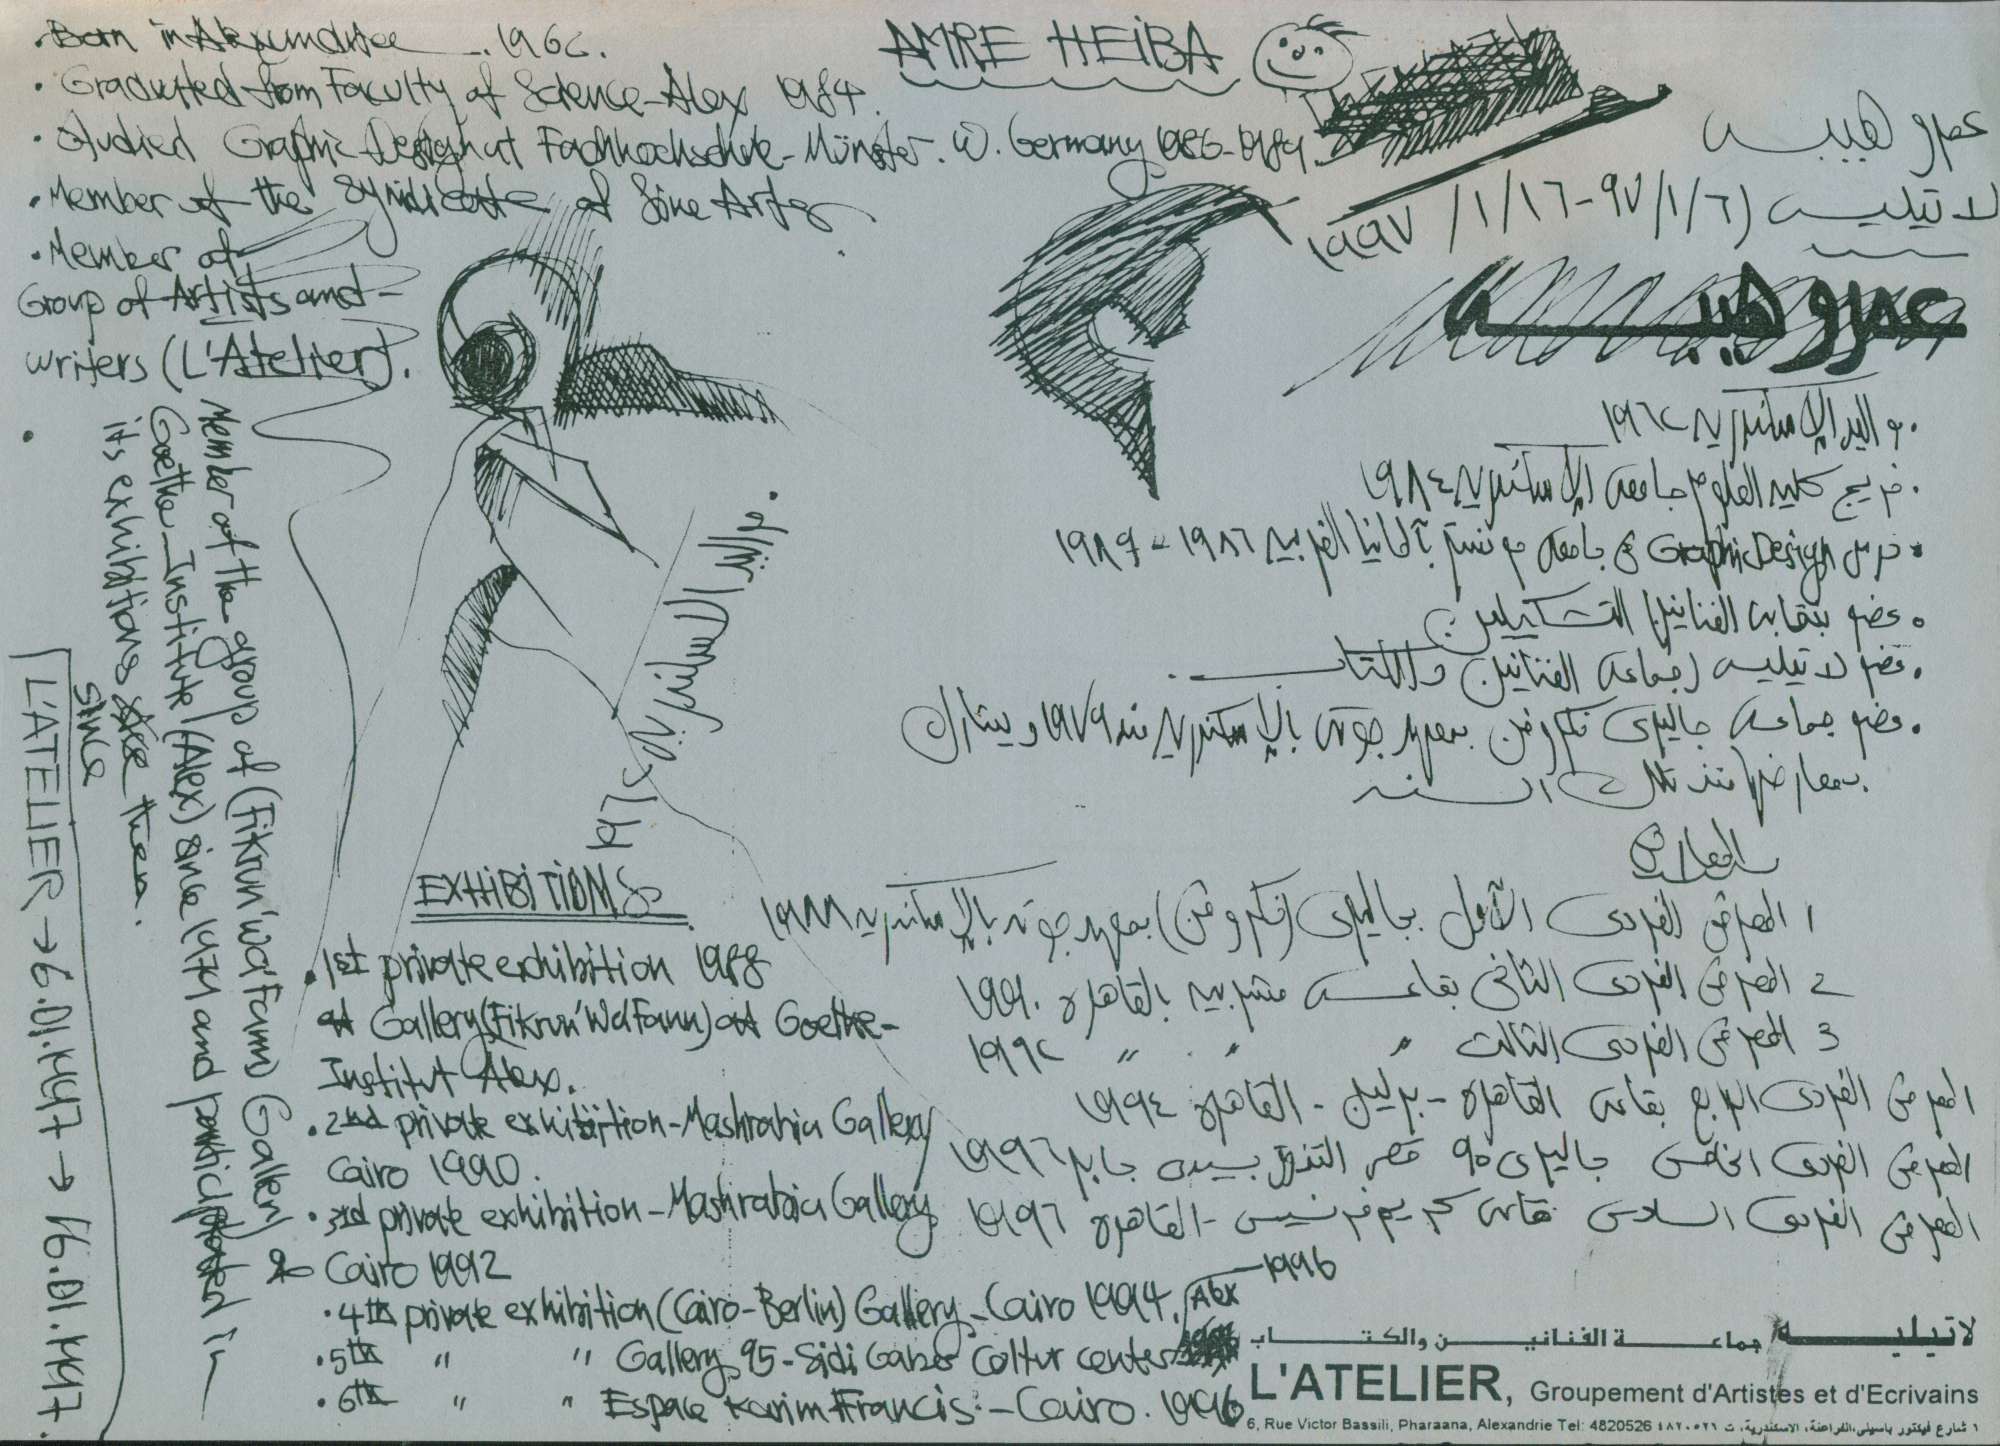 AMRE HEIBA
· Born in Alexandria - 1962.
· Graduated from Faculty of Science - Alex 1984.
· Studied Graphic Design at Fachhochschule - Münster. W. Germany 1986-1989.
· Member of the Syndicate of Fine Arts
· Member of
Group of Artists and -
writers (L'Atelier).
·
Member of the group of (Fikrun' Wa' Fann) Gallery
Goethe Institute (Alex) since 1979 and participated in
its exhibitions since then.
since
L'ATELIER → 6.01.1997 → 16.01.1997.
EXHIBITIONS
· 1st private exhibition 1988
at Gallery (Fikrun' Wa Fann) at Goethe-
Institut Alex.
· 2nd private exhibition - Mashrabia Gallery
Cairo 1990.
· 3rd private exhibition - Mashrabia Gallery
Cairo 1992
· 4th private exhibition (Cairo-Berlin) Gallery - Cairo 1994.
· 5th " " Gallery 95 - Sidi Gaber Coltur center Alex 1996
· 6th " " Espace Karim Francis - Cairo. 1996
عمرو هيبه
لاتيليه (٩٧/١/٦ - ١٩٩٧/١/١٦
عمرو هيبه
· مواليد الإسكندريه ١٩٦٢
· خريج كلية العلوم جامعة الإسكندريه ١٩٨٤
· درس Graphic Design في جامعة مونستر بألمانيا الغربيه ١٩٨٦ - ١٩٨٩
· عضو بنقابة الفنانين التشكيلين
· عضو لاتيليه (جماعة الفنانين والكتاب.
· عضو جماعة جاليرى فكر وفن بمعهد جوته بالإسكندريه منذ ١٩٧٩ ويشارك
بمعارضها منذ تلك السنه
المعارض
1 المعرض الفردى الأول بجاليرى (فكر وفن) بمعهد جوته بالإسكندريه ١٩٨٨
2 المعرض الفردى الثانى بقاعة مشربيه بالقاهره ١٩٩٠
3 المعرض الفردى الثالث " " " ١٩٩٢
المعرض الفردى الرابع بقاعة القاهره - برلين - القاهره ١٩٩٤
المعرض الفردى الخامس جاليرى ٩٥ قصر التذوق بسيدى جابر ١٩٩٦
المعرض الفردى السادس بقاعة كريم فرنسيس - القاهره ١٩٩٦
لاتيليه جماعة الفنانين والكتاب
L'ATELIER, Groupement d'Artistes et d'Ecrivains
6, Rue Victor Bassili, Pharaana, Alexandrie Tel: 4820526 ٦ شارع فيكتور باسيلى، الفراعنة، الاسكندرية، ت ٤٨٢٠٥٢٦